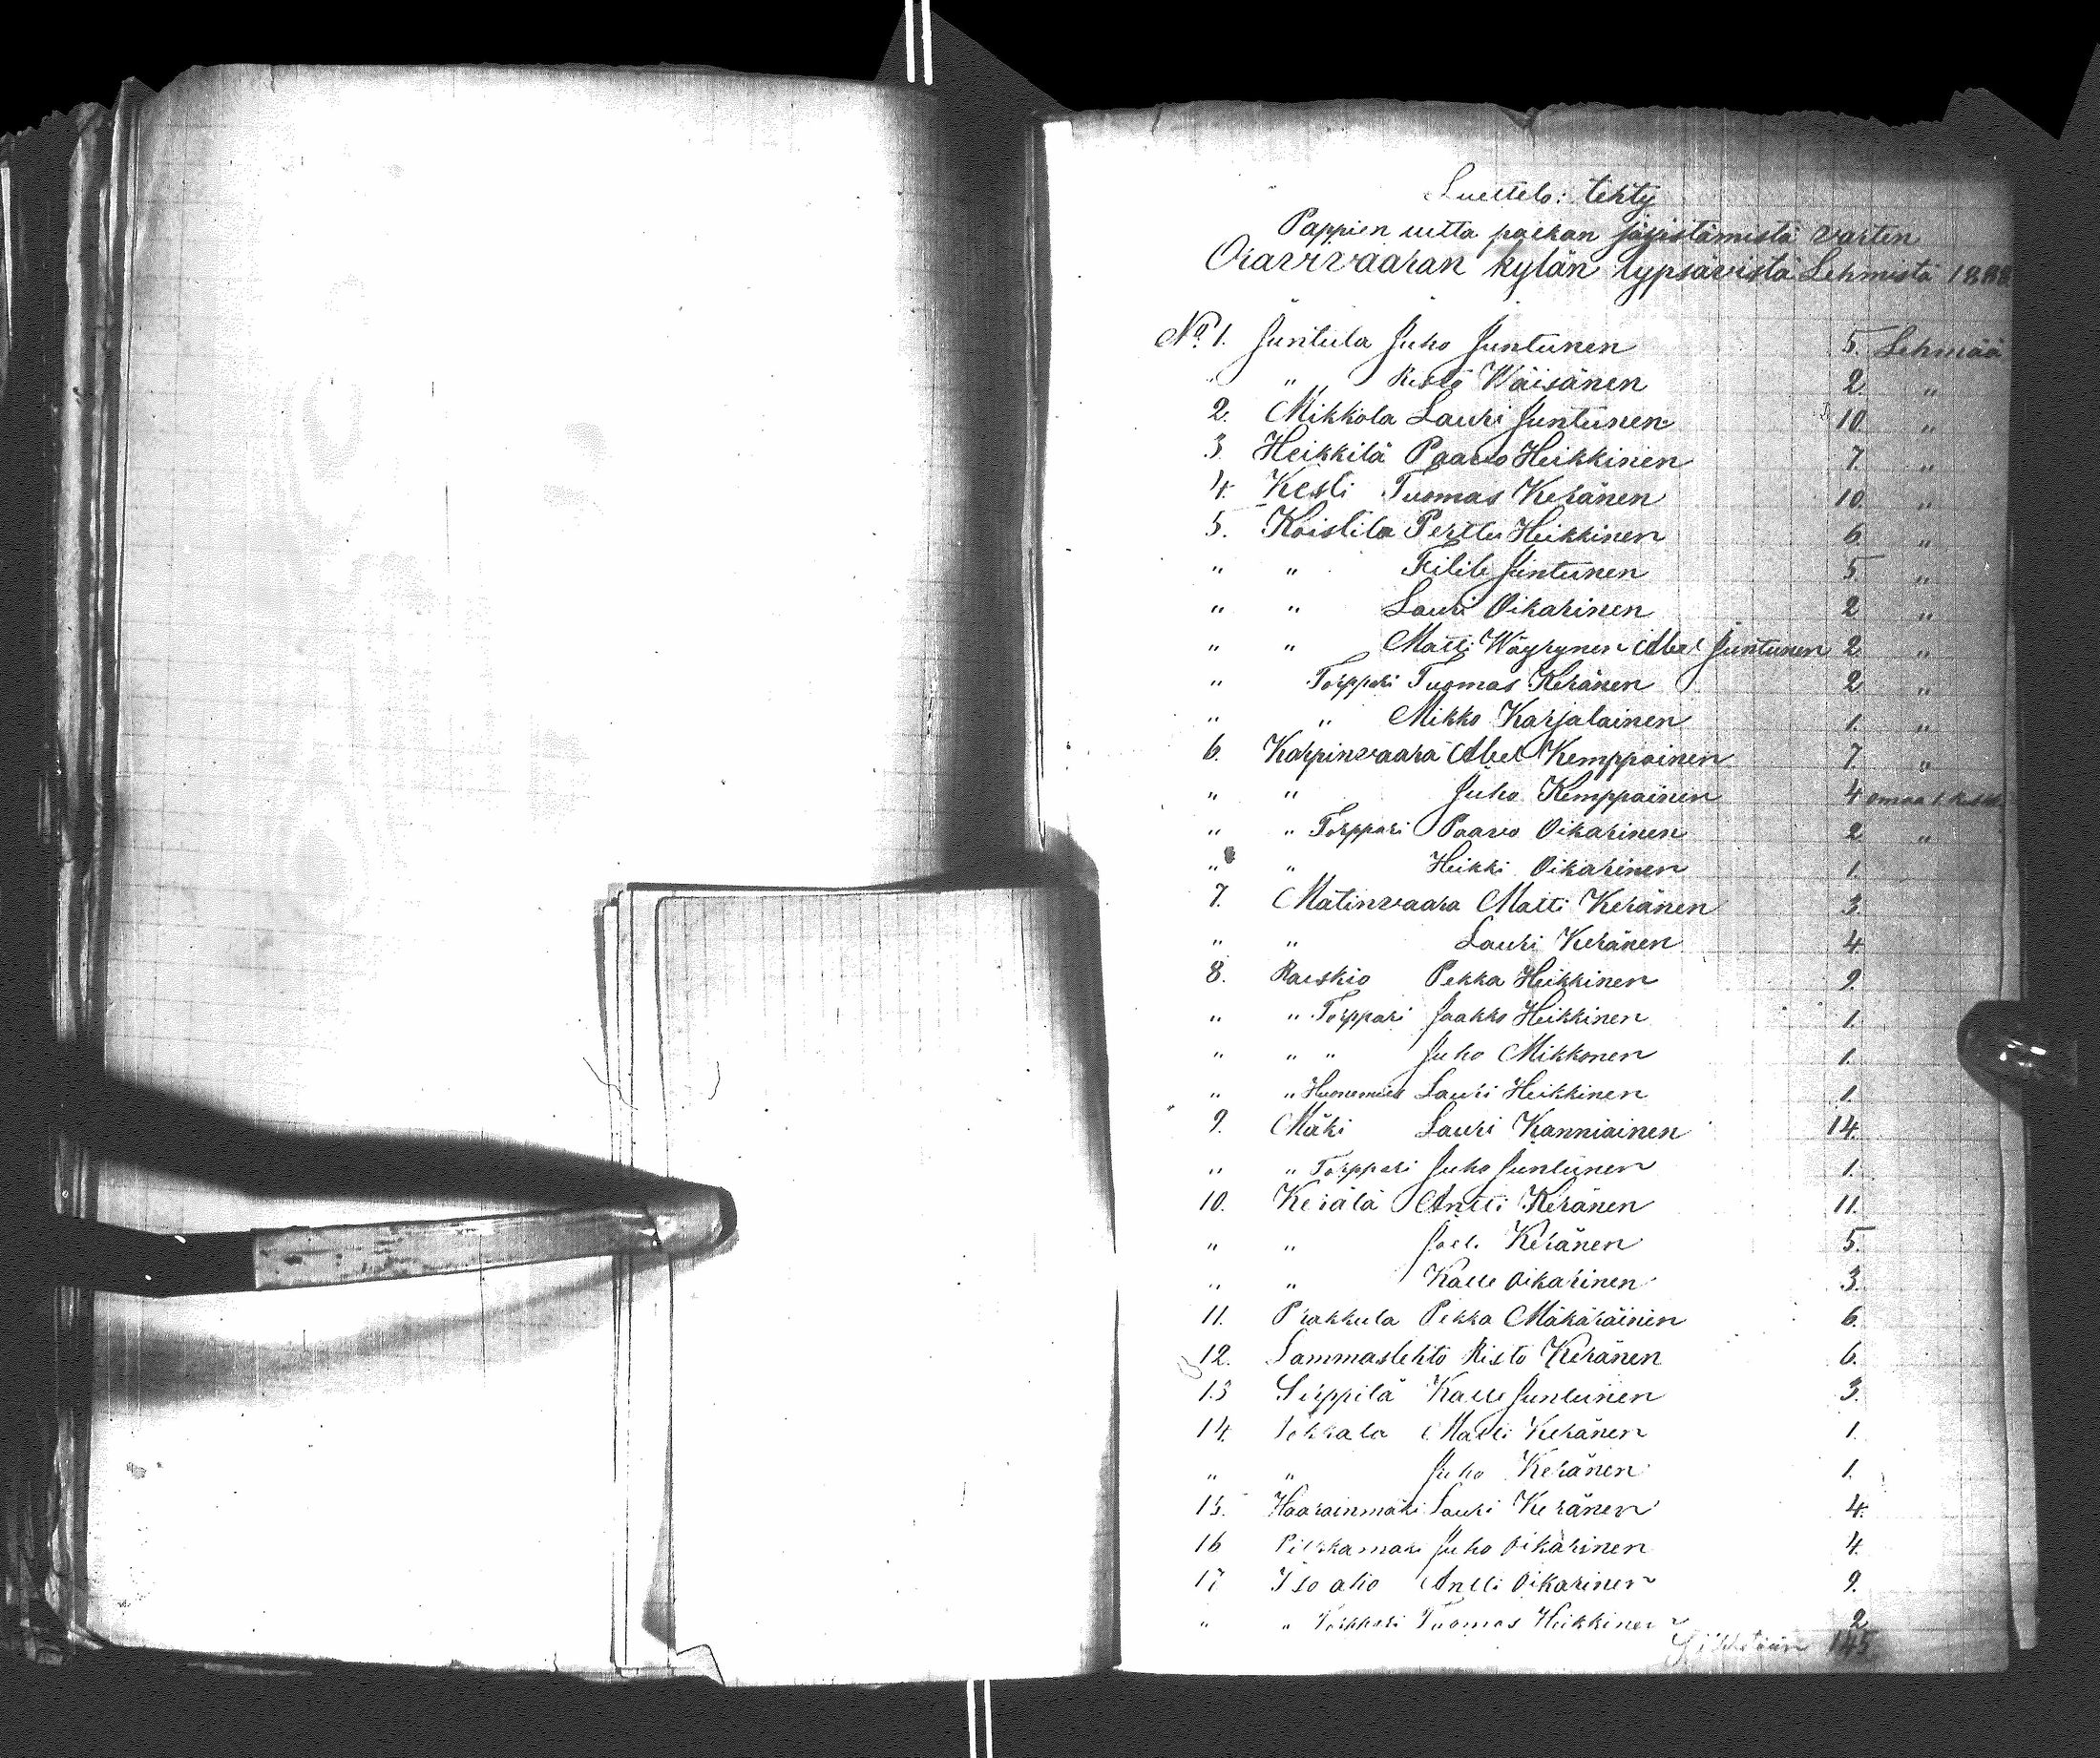 Luettelo: tehty
Pappien uutta palkan järjestämistä varten
Oravivaaran kylän lypsävistä Lehmistä 1888
No 1. Juntula Juho Juntunen 5. Lehmää
" " " Risto Wäisänen 2. "
2. Mikkola Lauri Juntunen 10 "
3. Heikkilä Paavo Heikkinen 7. "
4. Kesti Tuomas Keränen 10. "
5. Koistila Perttu Heikkinen 6 "
" " Juntunen 5 "
" " Lauri Oikarinen 2 "
" " Matti Wäyrynen Abel Juntunen 2 "
" Torppari Tuomas Keränen 2 "
" " Mikko Karjalainen 1. "
6. Karpinvaara Abel Kemppainen 7. "
" " Juho Kemppainen 4 omaa 1
" " Torppari Paavo Oikarinen 2 "
" " Heikki Oikarinen 1.
7. Matinvaara Matti Keränen 3.
" " Lauri Keränen 4.
8. Raeskio Pekka Heikkinen 9.
" " Torppari Jaakko Heikkinen 1.
" " " Juho Mikkonen 1.
" " Huonemies Lauri Heikkinen 1.
9. Mäki Lauri Kanniainen 14.
" " Torppari Juho Juntunen 1.
10. Kerälä Antti Keränen 11.
" " Joel. Keränen 5.
" " Kalle Oikarinen 3.
11. Prakkula Pekka Mäkäräinen 6.
12. Lammaslehto Risto Keränen 6.
13 Sirppilä Kalle Juntunen 3.
14. Matti Keränen 1.
" " Juho Keränen 1.
15. Haarainmäki Lauri Keränen 4.
16 Juho Oikarinen 4.
17 Iso aho Antti Oikarinen 9.
" " Torppari Tuomas Heikkinen 2
145